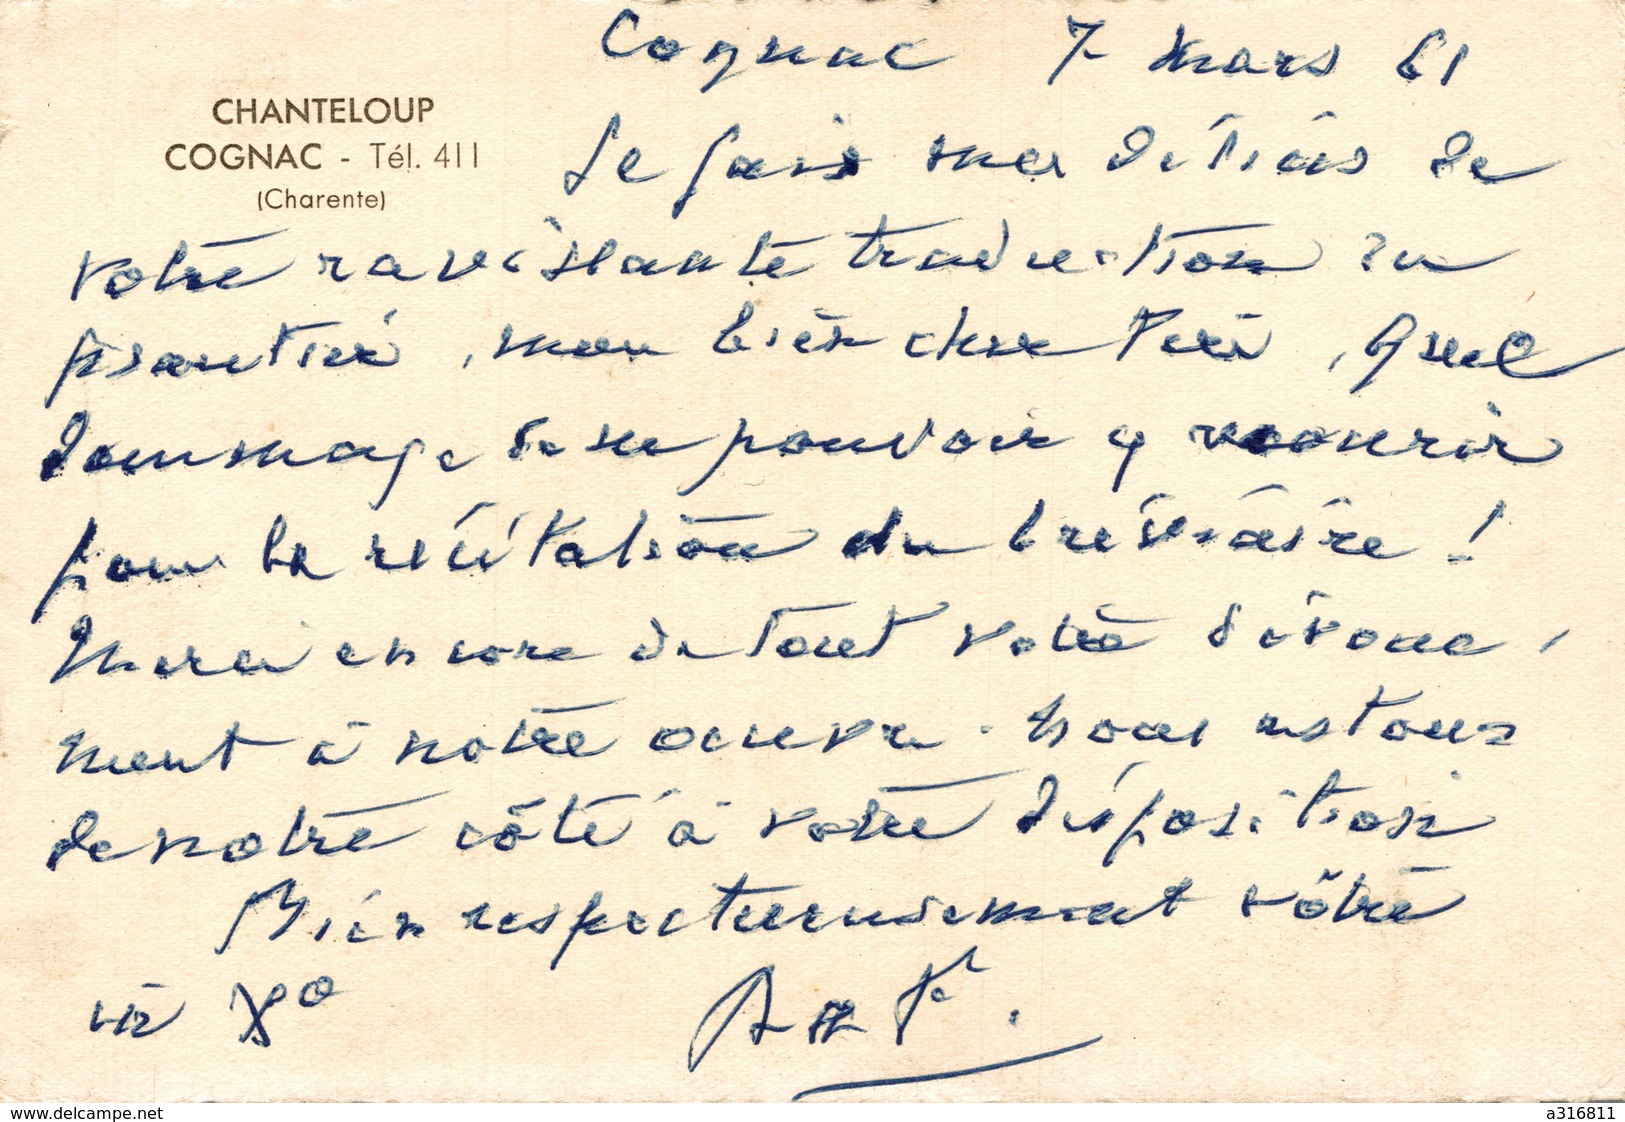 Cognac 7 mars 61
CHANTELOUP
COGNAC - Tél. 411
(Charente)
Je fais mes délices de
votre ravissante traduction du
psautier, mon bien cher Père, Quel
dommage de ne pouvoir y recourir
pour la récitation du bréviaire !
Merci encore de tout votre dévoue-
ment à notre œuvre. Nous restons
de notre côté à votre disposition
Bien respectueusement vôtre
in Xº
www.delcampe.net
a316811